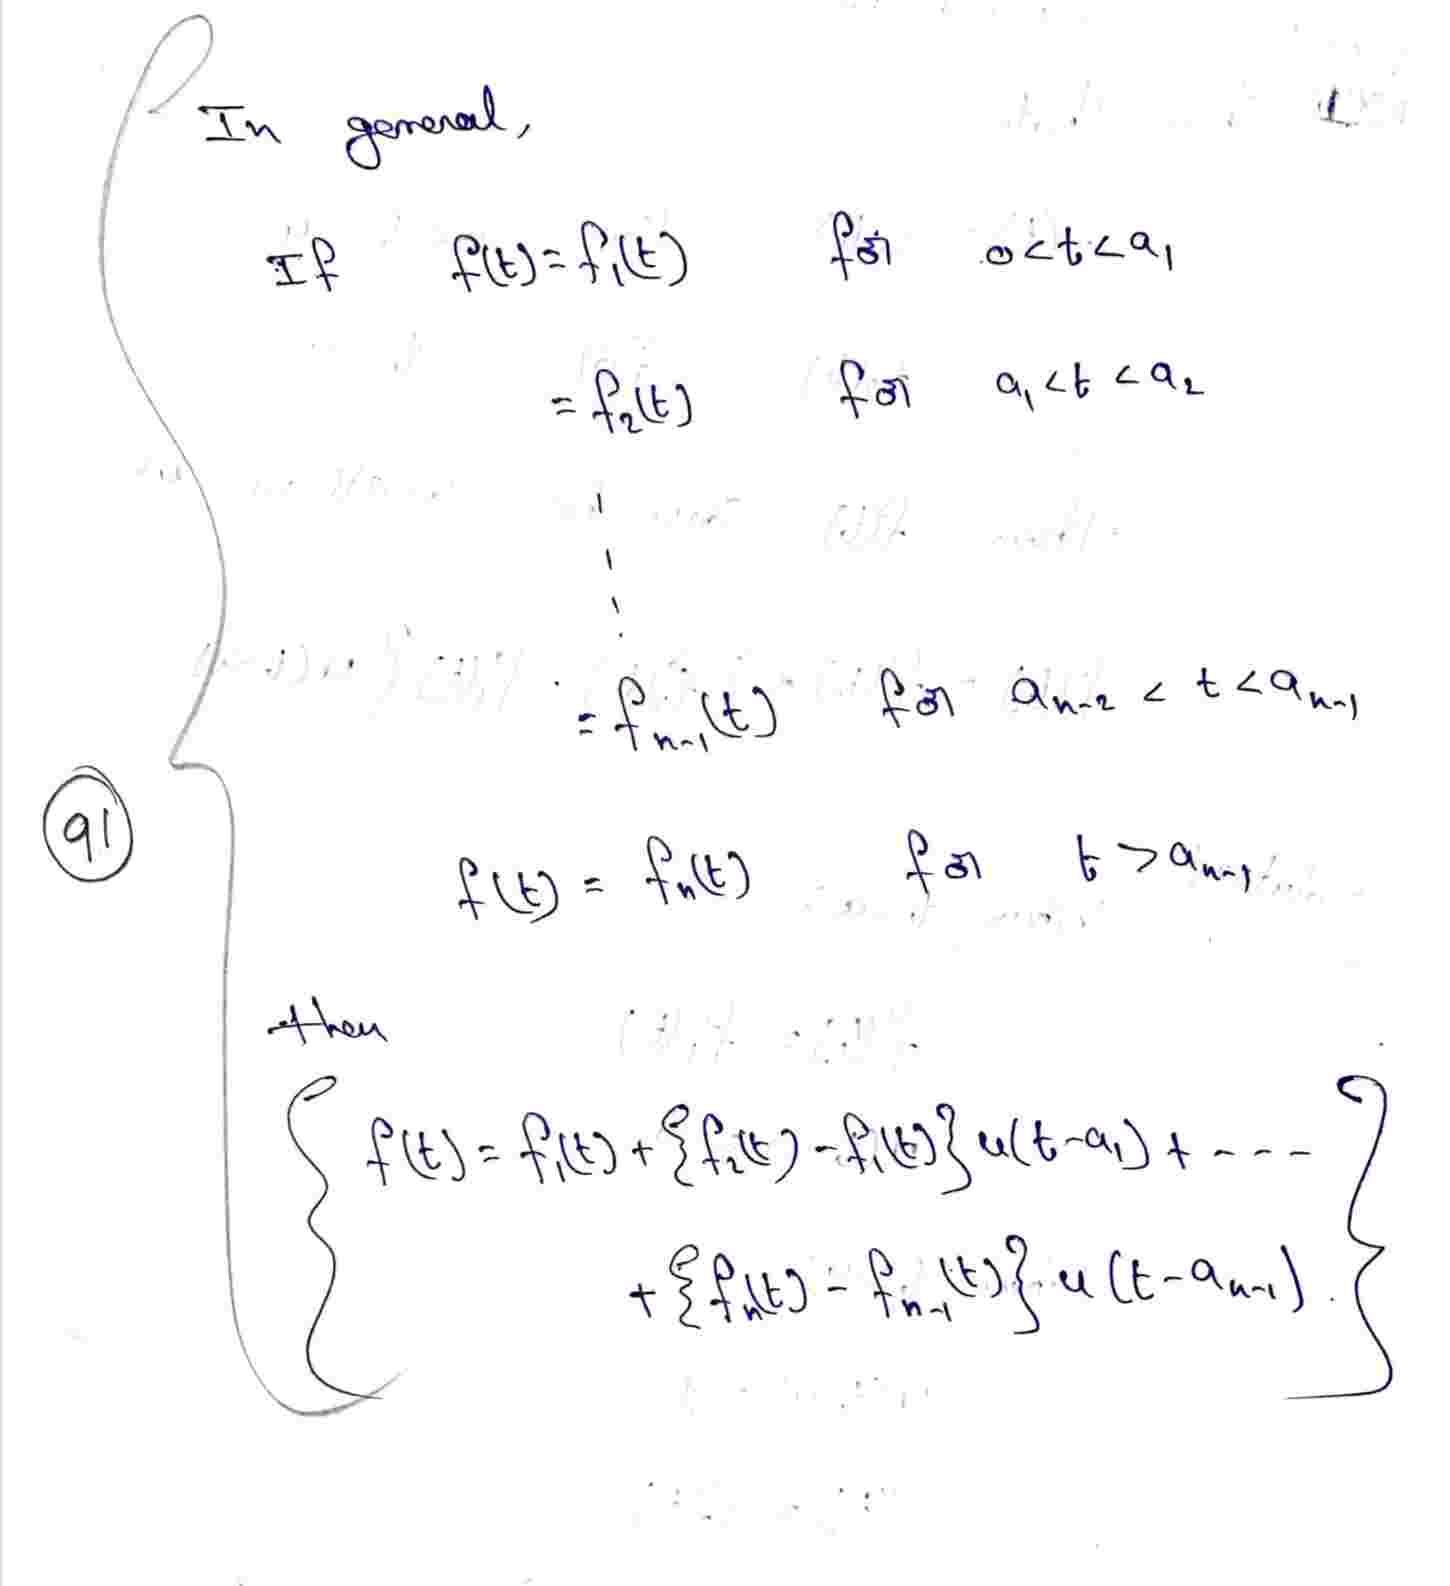 In general,
If f(t) = f₁(t) for 0 < t < a₁
= f₂(t) for a₁ < t < a₂
= fₙ₋₁(t) for aₙ₋₂ < t < aₙ₋₁
91
f(t) = fₙ(t) for t > aₙ₋₁
then
f(t) = f₁(t) + {f₂(t) - f₁(t)} u(t-a₁) + ---
+ {fₙ(t) - fₙ₋₁(t)} u(t-aₙ₋₁).